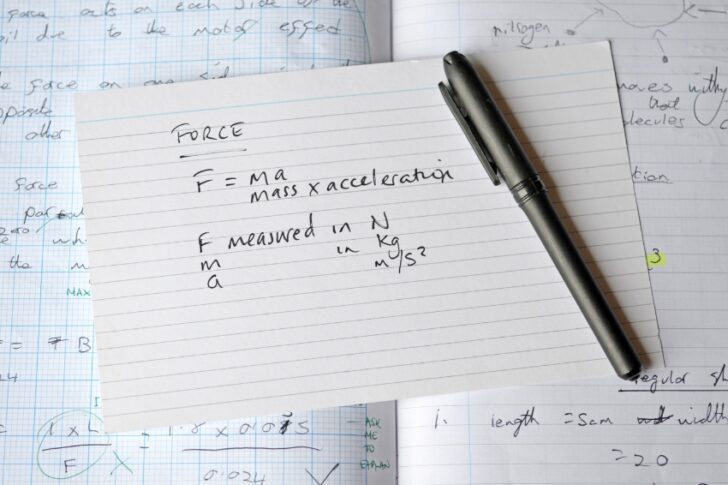 force acts on each side of the
oil due to the motor effect
force on one side
opposite
other
force
the
MAX
= B
24
1 x L
F
= 1.8 x 0.015
0.024
ASK
ME
TO
EXPLAIN
FORCE
F = ma
mass x acceleration
F measured in N
m in kg
a m/s²
nitrogen
moves with
that
molecules
tion
3
regular sh
1. length = 5cm width
= 20